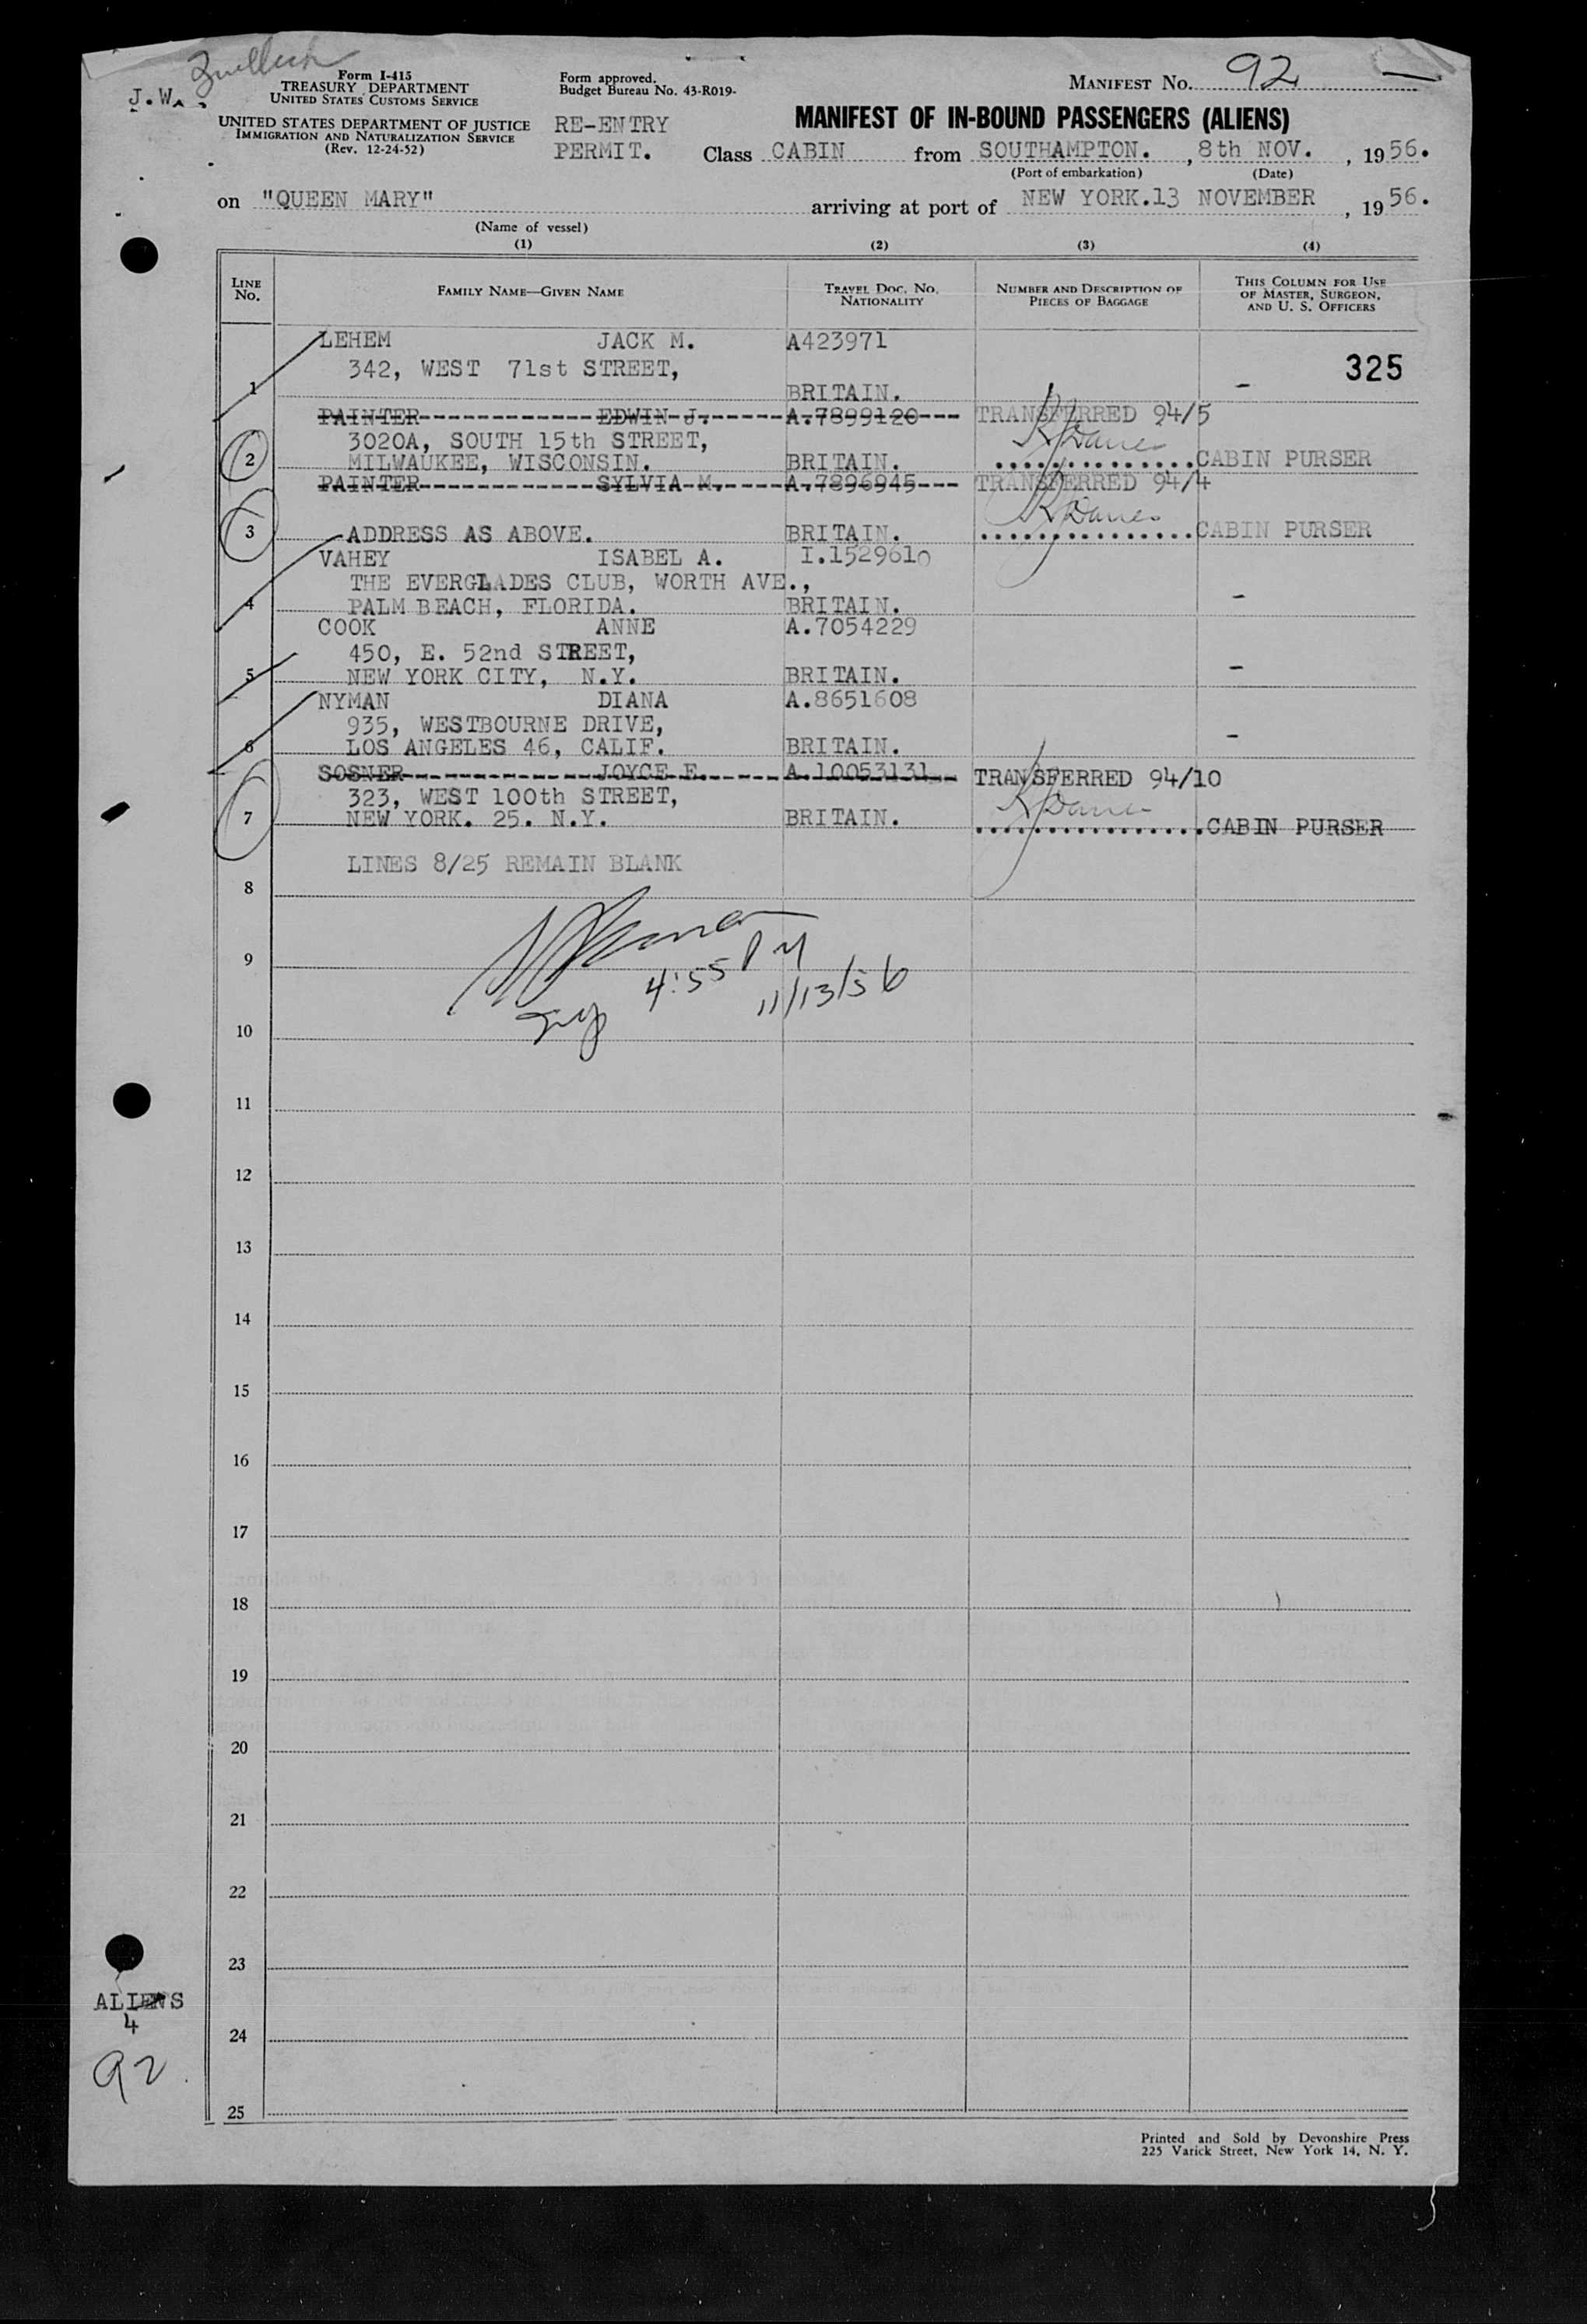 J.W.
Form I-415
TREASURY DEPARTMENT
UNITED STATES CUSTOMS SERVICE
UNITED STATES DEPARTMENT OF JUSTICE
IMMIGRATION AND NATURALIZATION SERVICE
(Rev. 12-24-52)
Form approved.
Budget Bureau No. 43-R019-
RE-ENTRY
PERMIT.
MANIFEST No. 92
MANIFEST OF IN-BOUND PASSENGERS (ALIENS)
Class CABIN from SOUTHAMPTON. , 8th NOV. , 1956.
(Port of embarkation) (Date)
on "QUEEN MARY" arriving at port of NEW YORK.13 NOVEMBER , 1956.
(Name of vessel)
(1) (2) (3) (4)
LINE No. FAMILY NAME—GIVEN NAME TRAVEL DOC. NO. NATIONALITY NUMBER AND DESCRIPTION OF PIECES OF BAGGAGE THIS COLUMN FOR USE OF MASTER, SURGEON, AND U. S. OFFICERS
LEHEM JACK M. A423971
342, WEST 71st STREET, 325
1 BRITAIN. -
PAINTER EDWIN J. A.7899120 TRANSFERRED 94/5
3020A, SOUTH 15th STREET,
2 MILWAUKEE, WISCONSIN. BRITAIN. CABIN PURSER
PAINTER SYLVIA M. A.7896945 TRANSFERRED 94/4
3 ADDRESS AS ABOVE. BRITAIN. CABIN PURSER
VAHEY ISABEL A. I.1529610
THE EVERGLADES CLUB, WORTH AVE.,
4 PALM BEACH, FLORIDA. BRITAIN. -
COOK ANNE A.7054229
450, E. 52nd STREET,
5 NEW YORK CITY, N.Y. BRITAIN. -
NYMAN DIANA A.8651608
935, WESTBOURNE DRIVE,
6 LOS ANGELES 46, CALIF. BRITAIN. -
SOSNER JOYCE E. A.10053131 TRANSFERRED 94/10
323, WEST 100th STREET,
7 NEW YORK. 25. N.Y. BRITAIN. CABIN PURSER
LINES 8/25 REMAIN BLANK
8
9
4:55 PM
11/13/56
10
11
12
13
14
15
16
17
18
19
20
21
22
23
ALIENS
4
24
92
25
Printed and Sold by Devonshire Press
225 Varick Street, New York 14, N. Y.